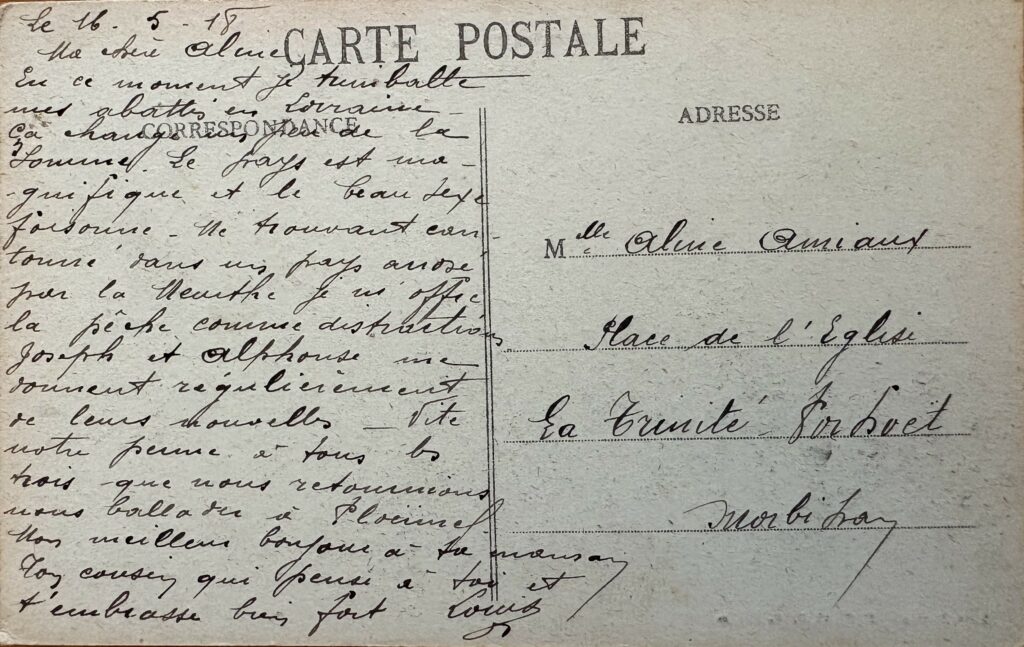 CARTE POSTALE
CORRESPONDANCE
Le 16 - 5 - 18
Ma chère Aline
En ce moment je trimballe
mes abattis en Lorraine
ça change un peu de la
Somme. Le pays est ma-
gnifique et le beau sexe
foisonne - Me trouvant can-
tonné dans un pays arrosé
par la Meurthe je m'offre
la pêche comme distractions
Joseph et Alphonse me
donnent régulièrement
de leurs nouvelles - Vite
notre perme à tous les
trois que nous retournions
nous ballader à Ploërmel
Mon meilleur bonjour à ta maman
Ton cousin qui pense à toi et
t'embrasse bien fort Louis
ADRESSE
Mlle Aline Amiaux
Place de l'Eglise
La Trinité Porhoët
Morbihan